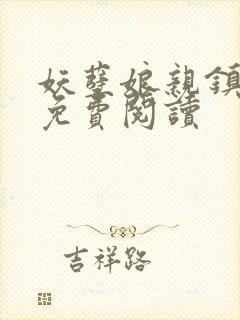 妖孽娘親鎮
免費閱讀
吉祥路